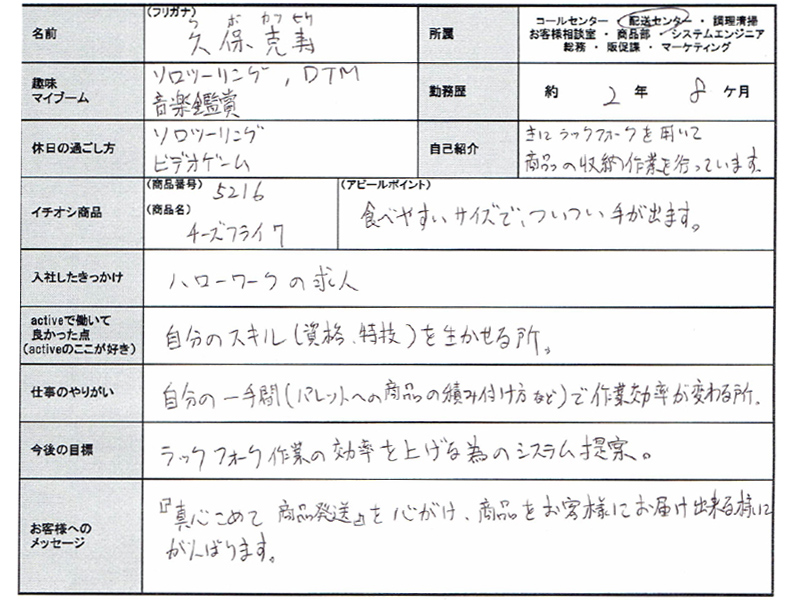 名前
(フリガナ)
くぼ かつとし
久保 克寿
所属
コールセンター ・ 配送センター ・ 調理清掃
お客様相談室 ・ 商品部 ・ システムエンジニア
総務 ・ 販促課 ・ マーケティング
趣味
マイブーム
ソロツーリング , DTM
音楽鑑賞
勤務歴
約 2 年 8 ケ月
休日の過ごし方
ソロツーリング
ビデオゲーム
自己紹介
主にラックフォークを用いて
商品の収納作業を行っています。
イチオシ商品
(商品番号) 5216
(商品名)
チーズフライ7
(アピールポイント)
食べやすいサイズで、ついつい手が出ます。
入社したきっかけ
ハローワークの求人
activeで働いて
良かった点
(activeのここが好き)
自分のスキル(資格、特技)を生かせる所。
仕事のやりがい
自分の一手間(パレットへの商品の積み付け方など)で作業効率が変わる所.
今後の目標
ラックフォーク作業の効率を上げる為のシステム提案。
お客様への
メッセージ
『真心こめて 商品発送』を心がけ、商品をお客様にお届け出来る様に
がんばります。